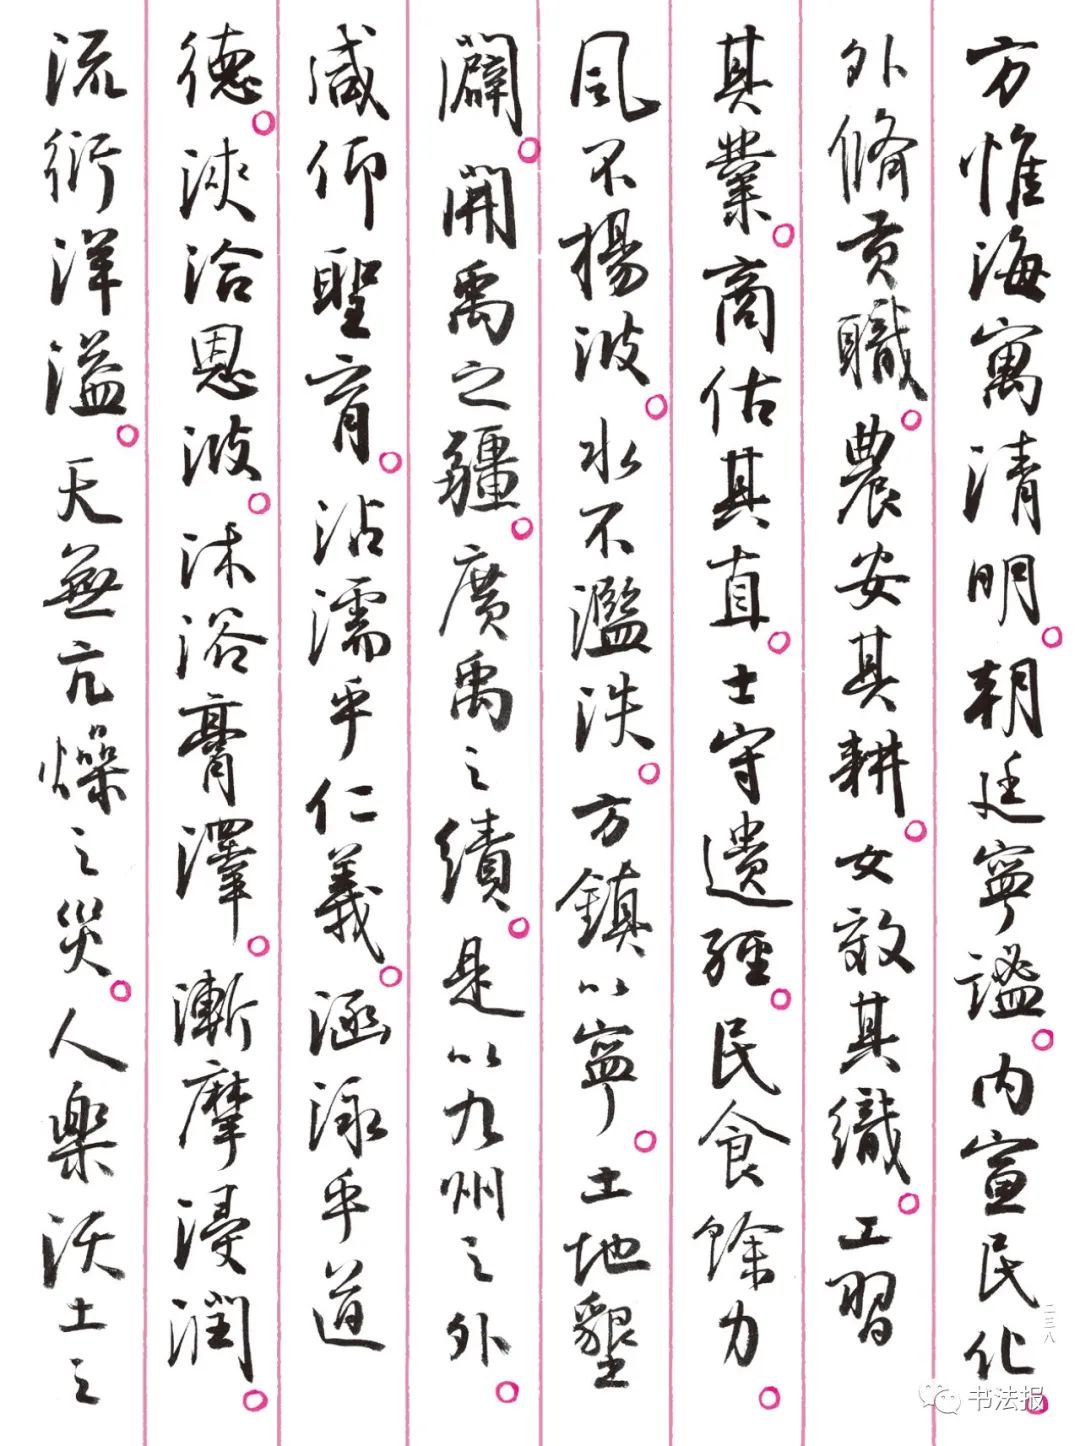 方惟海寓清明。朝廷寧謐。內宣民化。
外脩貢職。農安其耕。女效其織。工習
其業。商估其直。士守遺經。民食餘力。
風不揚波。水不濫泆。方鎮以寧。土地墾
闢。開禹之疆。廣禹之績。是以九州之外。
咸仰聖育。沾濡乎仁義。涵泳乎道
德。浹洽恩波。沐浴膏澤。漸摩浸潤。
流衍洋溢。天無亢燥之災。人樂沃土之
二三八
书法报